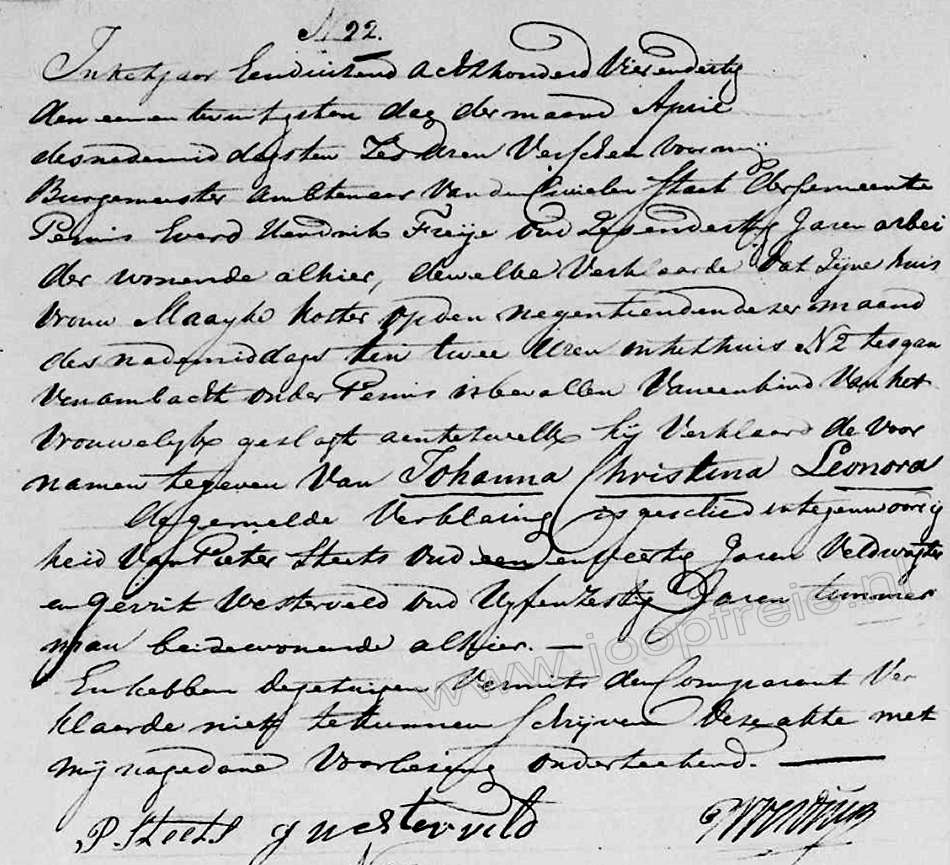 N 22.
In het jaar Eenduizend Achthonderd Vierendertig
den eenentwintigsten dag der maand April
des nademiddags ten Zes Uren Verscheen voor mij
Burgemeester Ambtenaar Van den Civielen Staat der Gemeente
Pernis Everd Hendrik Freije oud Zesendertig Jaren arbei
der wonende alhier, dewelke Verklaarde dat Zijne huis
vrouw Maayke Kotter op den negentienden dezer maand
des nademiddags ten twee Uren in het huis N2
Ambacht onder Pernis is bevallen Van een kind Van het
Vrouwelijk geslagt aan hetwelk hij Verklaard de voor
namen te geven Van Johanna Christina Leonora
de gemelde Verklaring is geschied in tegenwoordig
heid Van Pieter Steets oud een en veertig Jaren Veldwagter
en Gerrit Westerveld oud Vyfenzestig Jaren timmer
man beide wonende alhier. —
En hebben de getuigen Vermits de Comparant Ver
klaarde niet te kunnen Schrijven deze akte met
mij na gedane Voorlezing onderteekend. —
P. Steets G Westerveld
www.joopfreie.nl